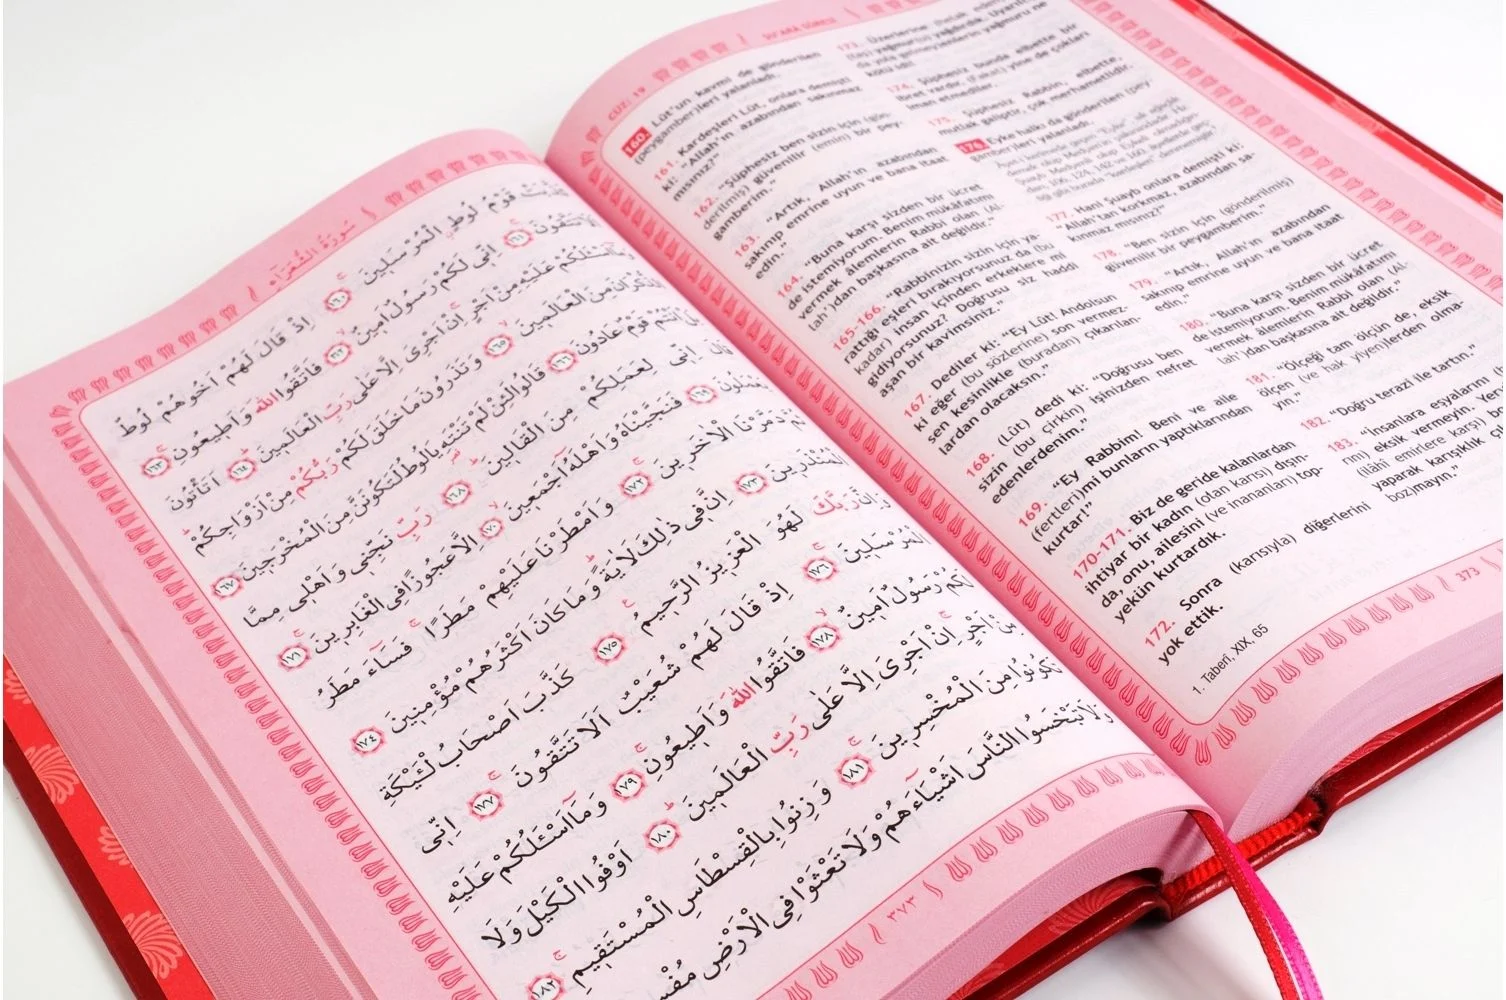 سُورَةُ الشُّعَرَاءِ
كَذَّبَتْ قَوْمُ لُوطٍ الْمُرْسَلِينَ ١٦٠ اِذْ قَالَ لَهُمْ اَخُوهُمْ لُوطٌ
اَلَا تَتَّقُونَ ١٦١ اِنِّى لَكُمْ رَسُولٌ اَمِينٌ ١٦٢ فَاتَّقُوا اللّٰهَ وَاَطِيعُونِ ١٦٣
وَمَا اَسْـَٔلُكُمْ عَلَيْهِ مِنْ اَجْرٍ اِنْ اَجْرِىَ اِلَّا عَلٰى رَبِّ الْعَالَمِينَ ١٦٤ اَتَأْتُونَ
الذُّكْرَانَ مِنَ الْعَالَمِينَ ١٦٥ وَتَذَرُونَ مَا خَلَقَ لَكُمْ رَبُّكُمْ مِنْ اَزْوَاجِكُمْ
بَلْ اَنْتُمْ قَوْمٌ عَادُونَ ١٦٦ قَالُوا لَئِنْ لَمْ تَنْتَهِ يَالُوطُ لَتَكُونَنَّ مِنَ الْمُخْرَجِينَ ١٦٧
قَالَ اِنِّى لِعَمَلِكُمْ مِنَ الْقَالِينَ ١٦٨ رَبِّ نَجِّنِى وَاَهْلِى مِمَّا
يَعْمَلُونَ ١٦٩ فَنَجَّيْنَاهُ وَاَهْلَهُ اَجْمَعِينَ ١٧٠ اِلَّا عَجُوزًا فِى الْغَابِرِينَ ١٧١
ثُمَّ دَمَّرْنَا الْاٰخَرِينَ ١٧٢ وَاَمْطَرْنَا عَلَيْهِمْ مَطَرًا فَسَاءَ مَطَرُ
الْمُنْذَرِينَ ١٧٣ اِنَّ فِى ذٰلِكَ لَاٰيَةً وَمَا كَانَ اَكْثَرُهُمْ مُؤْمِنِينَ ١٧٤
وَاِنَّ رَبَّكَ لَهُوَ الْعَزِيزُ الرَّحِيمُ ١٧٥ كَذَّبَ اَصْحَابُ لْـَٔيْكَةِ
الْمُرْسَلِينَ ١٧٦ اِذْ قَالَ لَهُمْ شُعَيْبٌ اَلَا تَتَّقُونَ ١٧٧ اِنِّى
لَكُمْ رَسُولٌ اَمِينٌ ١٧٨ فَاتَّقُوا اللّٰهَ وَاَطِيعُونِ ١٧٩ وَمَا اَسْـَٔلُكُمْ عَلَيْهِ
مِنْ اَجْرٍ اِنْ اَجْرِىَ اِلَّا عَلٰى رَبِّ الْعَالَمِينَ ١٨٠ اَوْفُوا الْكَيْلَ وَلَا
تَكُونُوا مِنَ الْمُخْسِرِينَ ١٨١ وَزِنُوا بِالْقِسْطَاسِ الْمُسْتَقِيمِ ١٨٢
وَلَا تَبْخَسُوا النَّاسَ اَشْيَاءَهُمْ وَلَا تَعْثَوْا فِى الْاَرْضِ
٣٧٣
CÜZ: 19
ŞU'ARÂ SÛRESİ
160. Lût'un kavmi de gönderilen
(peygamber)leri yalanladı.
161. Kardeşleri Lût, onlara demişti
ki: "Allah'ın azabından sakınmaz
mısınız?"
162. "Şüphesiz ben sizin için (gön-
derilmiş) güvenilir (emin) bir pey-
gamberim."
163. "Artık, Allah'ın azabından
sakınıp emrine uyun ve bana itaat
edin."
164. "Buna karşı sizden bir ücret
de istemiyorum. Benim mükâfatımı
vermek âlemlerin Rabbi olan (Al-
lah')dan başkasına ait değildir."
165-166. "Rabbinizin sizin için ya-
rattığı eşleri bırakıyorsunuz da (bu
kadar) insan içinden erkeklere mi
gidiyorsunuz? Doğrusu siz haddi
aşan bir kavimsiniz."
167. Dediler ki: "Ey Lût! Andolsun
ki eğer (bu sözlerine) son vermez-
sen kesinlikle (buradan) çıkarılan-
lardan olacaksın."
168. (Lût) dedi ki: "Doğrusu ben
sizin (bu çirkin) işinizden nefret
edenlerdenim."
169. "Ey Rabbim! Beni ve aile
(fertleri)mi bunların yaptıklarından
kurtar!"
170-171. Biz de geride kalanlardan
ihtiyar bir kadın (olan karısı) dışın-
da, onu, ailesini (ve inananları) top-
yekün kurtardık.
172. Sonra (karısıyla) diğerlerini
yok ettik.
1. Taberî, XIX, 65
173. Üzerlerine (helak eden)
(taş) yağmur(u) yağdırdık. Uyarılıp
da yola gelmeyenlerin yağmuru ne
kötü idi!
174. Şüphesiz bunda elbette bir
ibret vardır. (Fakat) yine de çokları
iman etmediler.
175. Şüphesiz Rabbin, elbette,
mutlak galiptir, çok merhametlidir.
176. Eyke halkı da gönderilen (pey-
gamber)leri yalanladı.
177. Hani Şuayb onlara demişti ki:
"Allah'tan korkmaz, azabından sa-
kınmaz mısınız?"
178. "Ben sizin için (gönderilmiş)
güvenilir bir peygamberim."
179. "Artık, Allah'ın azabından
sakınıp emrine uyun ve bana itaat
edin."
180. "Buna karşı sizden bir ücret
de istemiyorum. Benim mükâfatımı
vermek âlemlerin Rabbi olan (Al-
lah')dan başkasına ait değildir."
181. "Ölçeği tam ölçün de, eksik
ölçen (ve hak yiyen)lerden olma-
yın."
182. "Doğru terazi ile tartın."
183. "İnsanlara eşyalarını (
rını) eksik vermeyin. Yer
(ilâhî emirlere karşı) bo
yaparak karışıklık çı
boz)mayın."
373